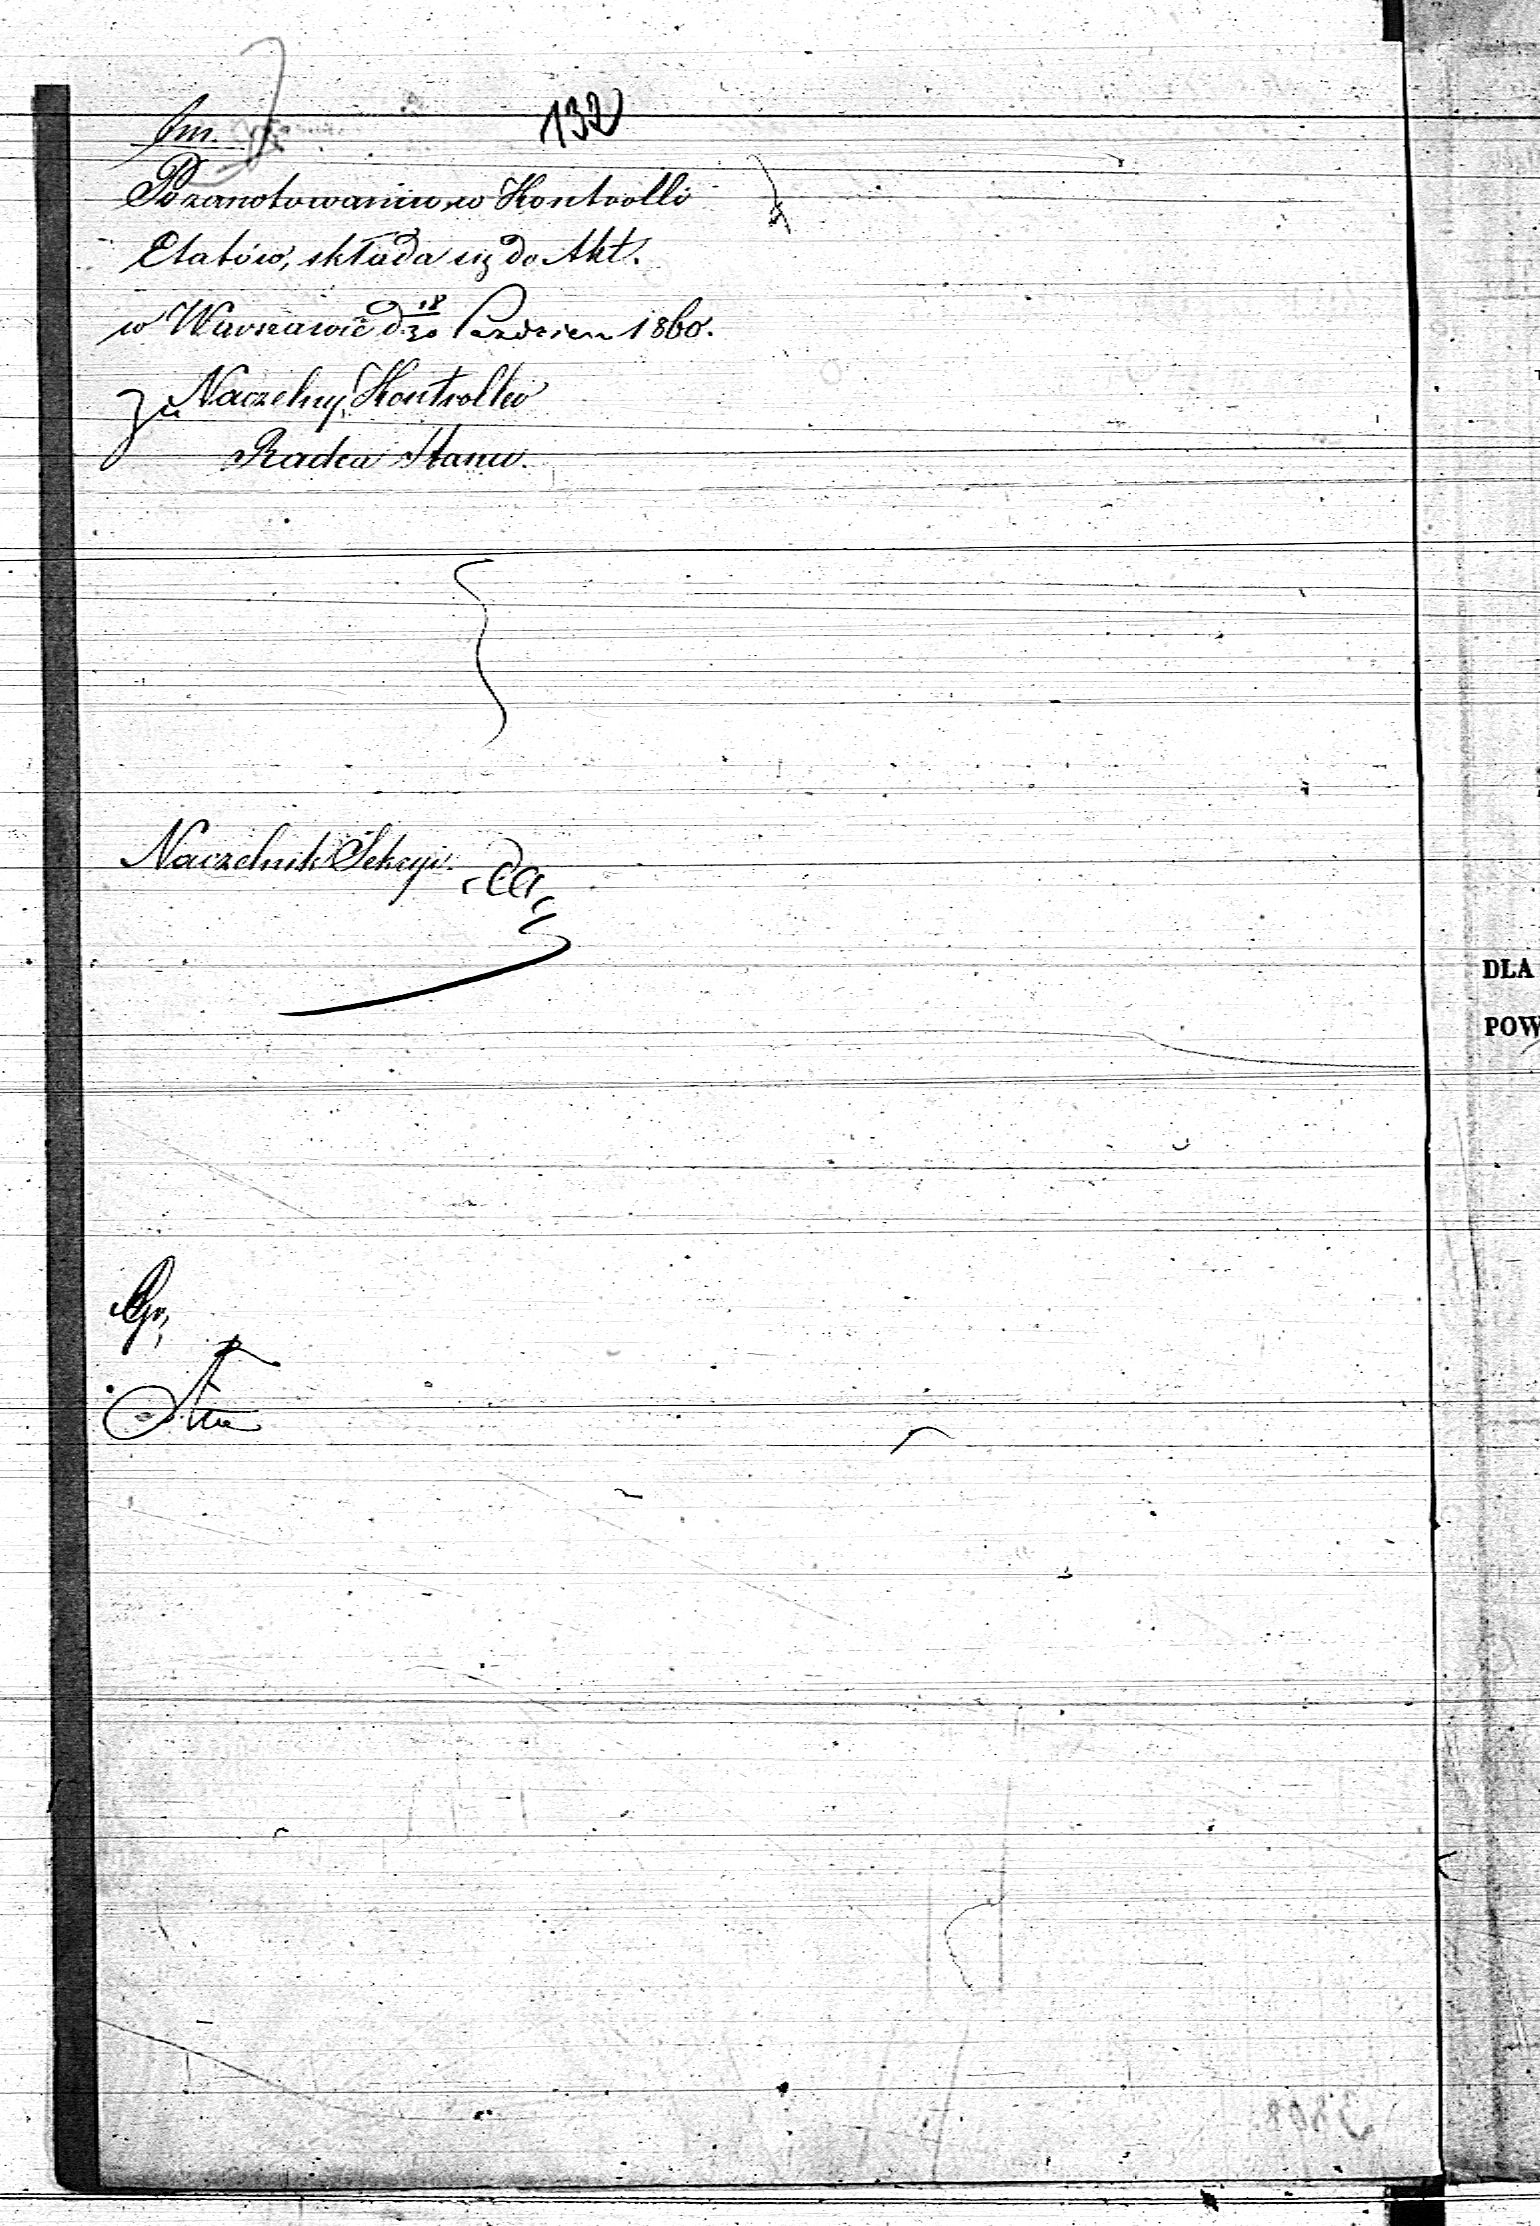 132
Po zanotowaniu w Kontrolli
Etatów, składa się do Akt.
w Warszawie d 18/30 Paździer 1860.
za Naczelny Kontroller
Radca Stanu.
Naczelnik Sekcyi.
DLA
POW